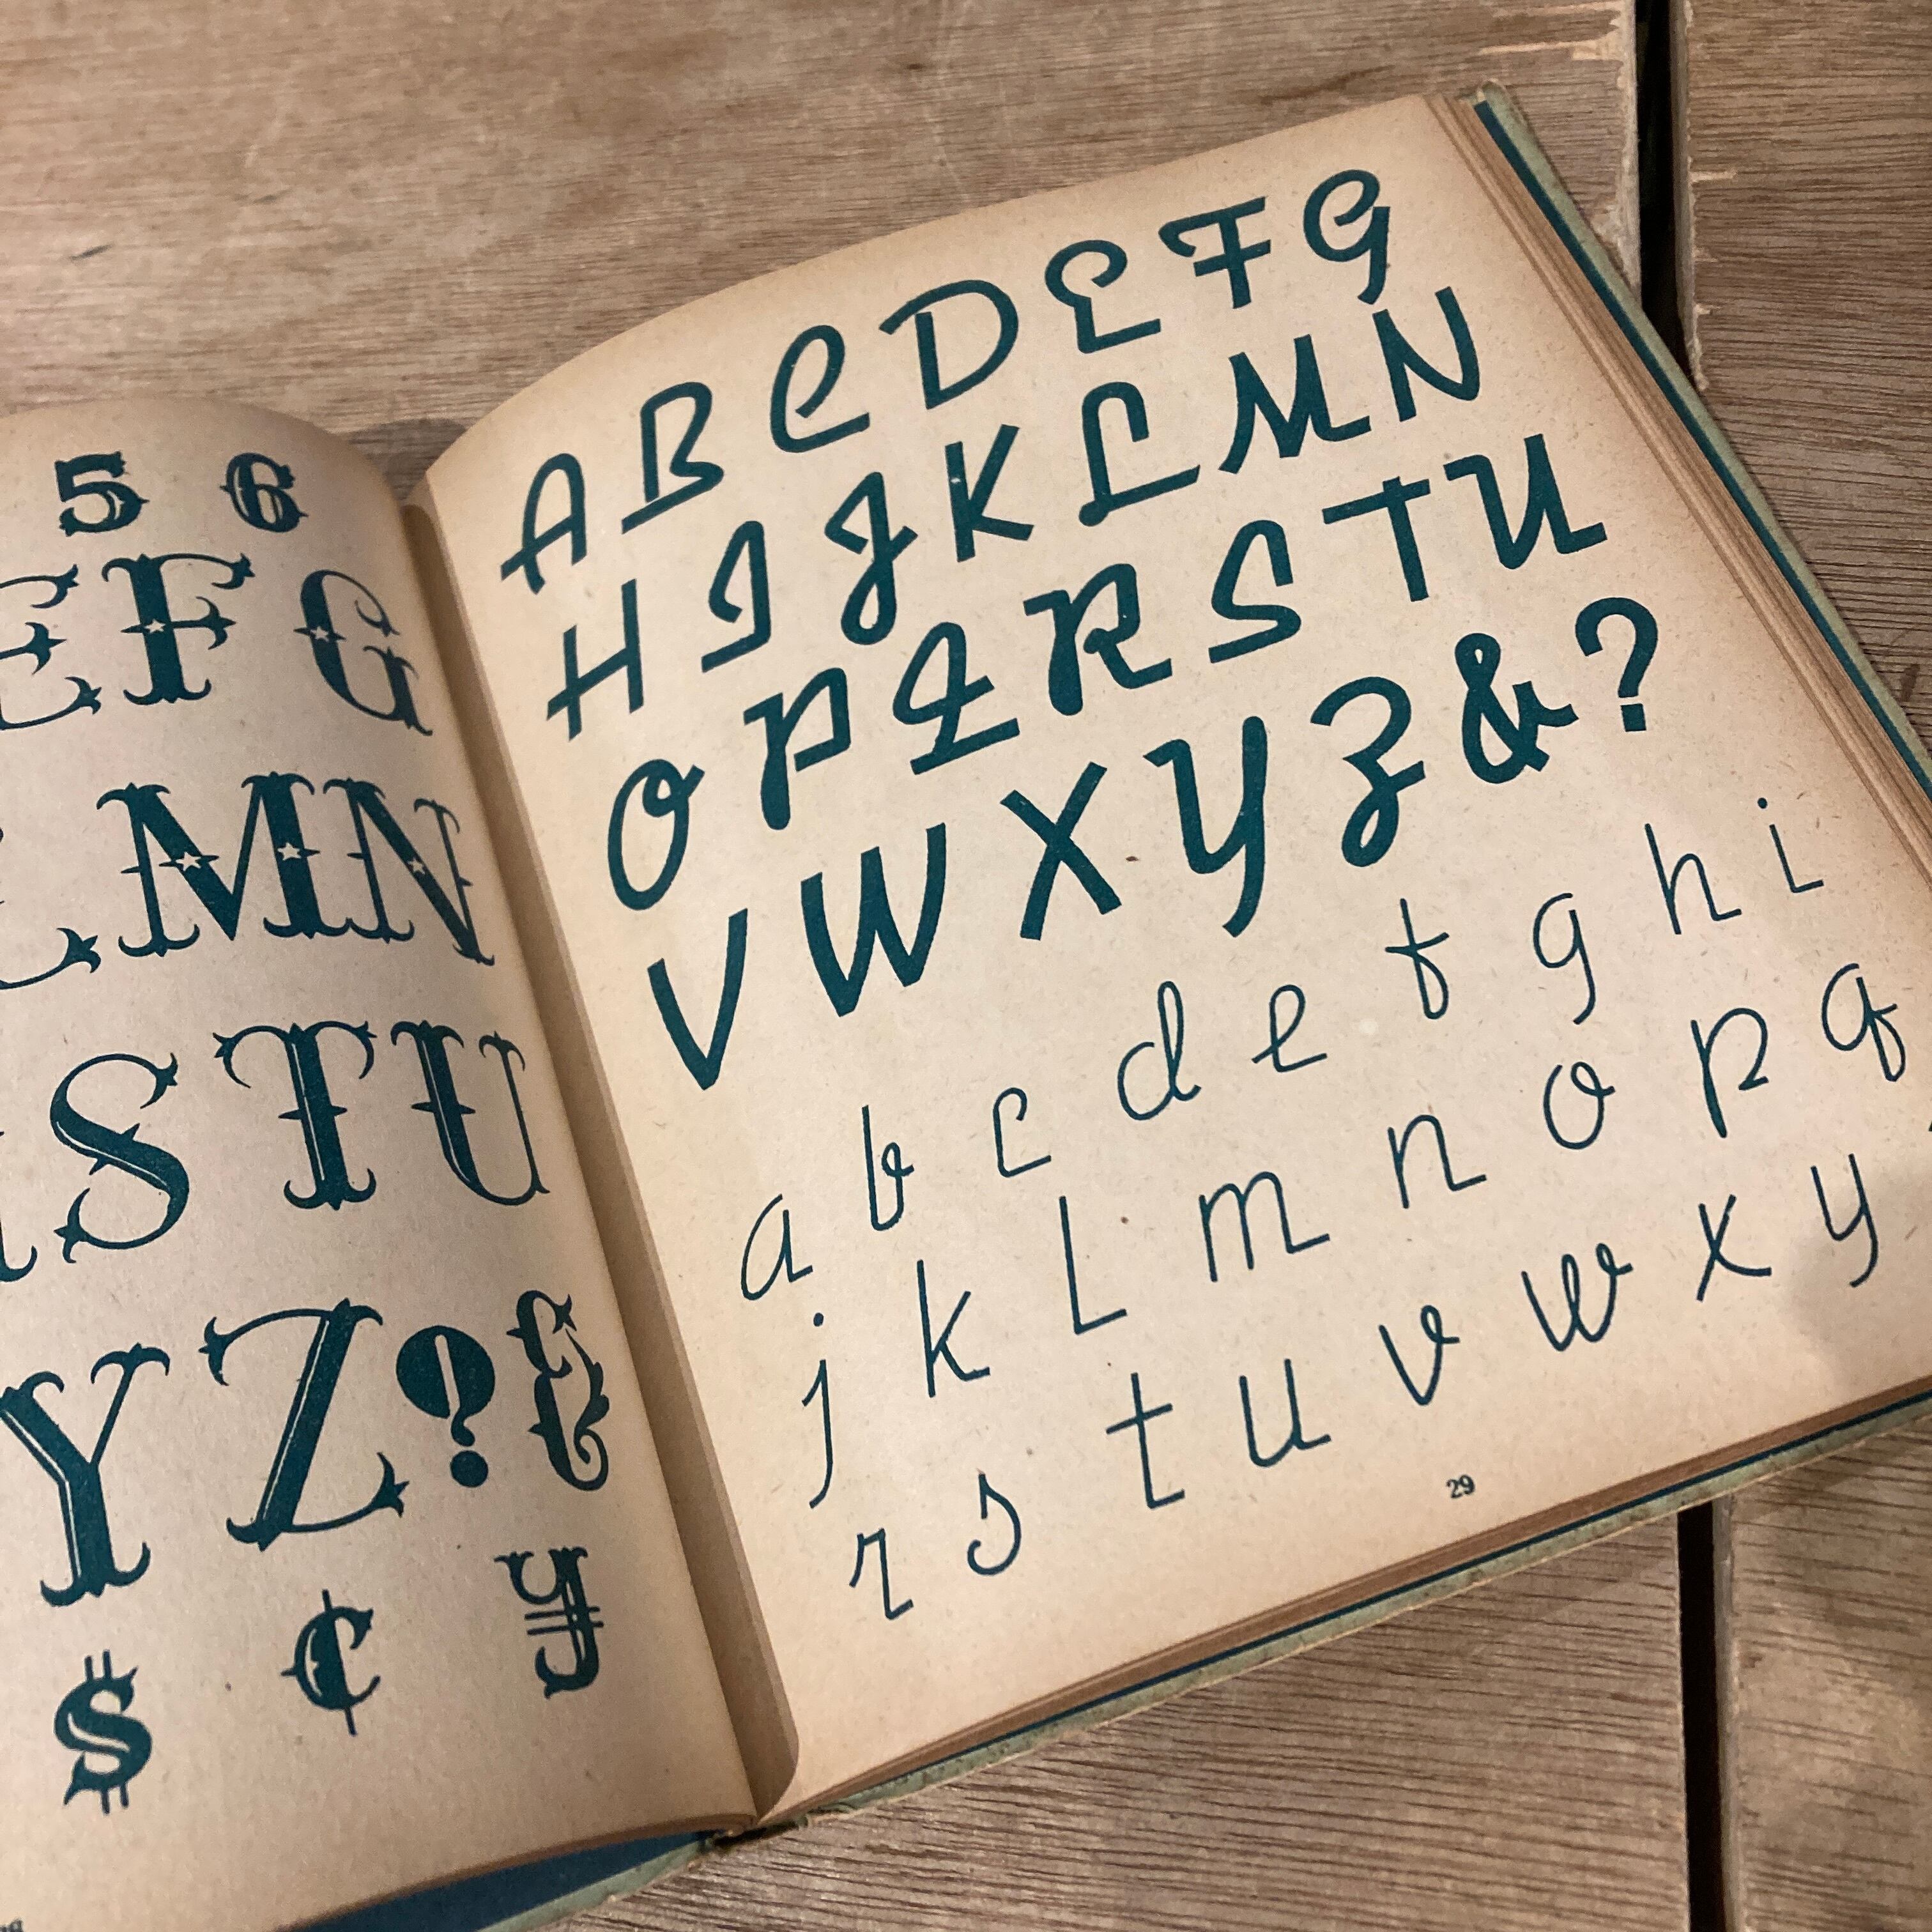 5 6
E F G
L M N
S T U
Y Z ? &
$ ¢ ¥
A B C D E F G
H I J K L M N
O P Q R S T U
V W X Y Z & ?
a b c d e f g h i
j k l m n o p q
r s t u v w x y
29